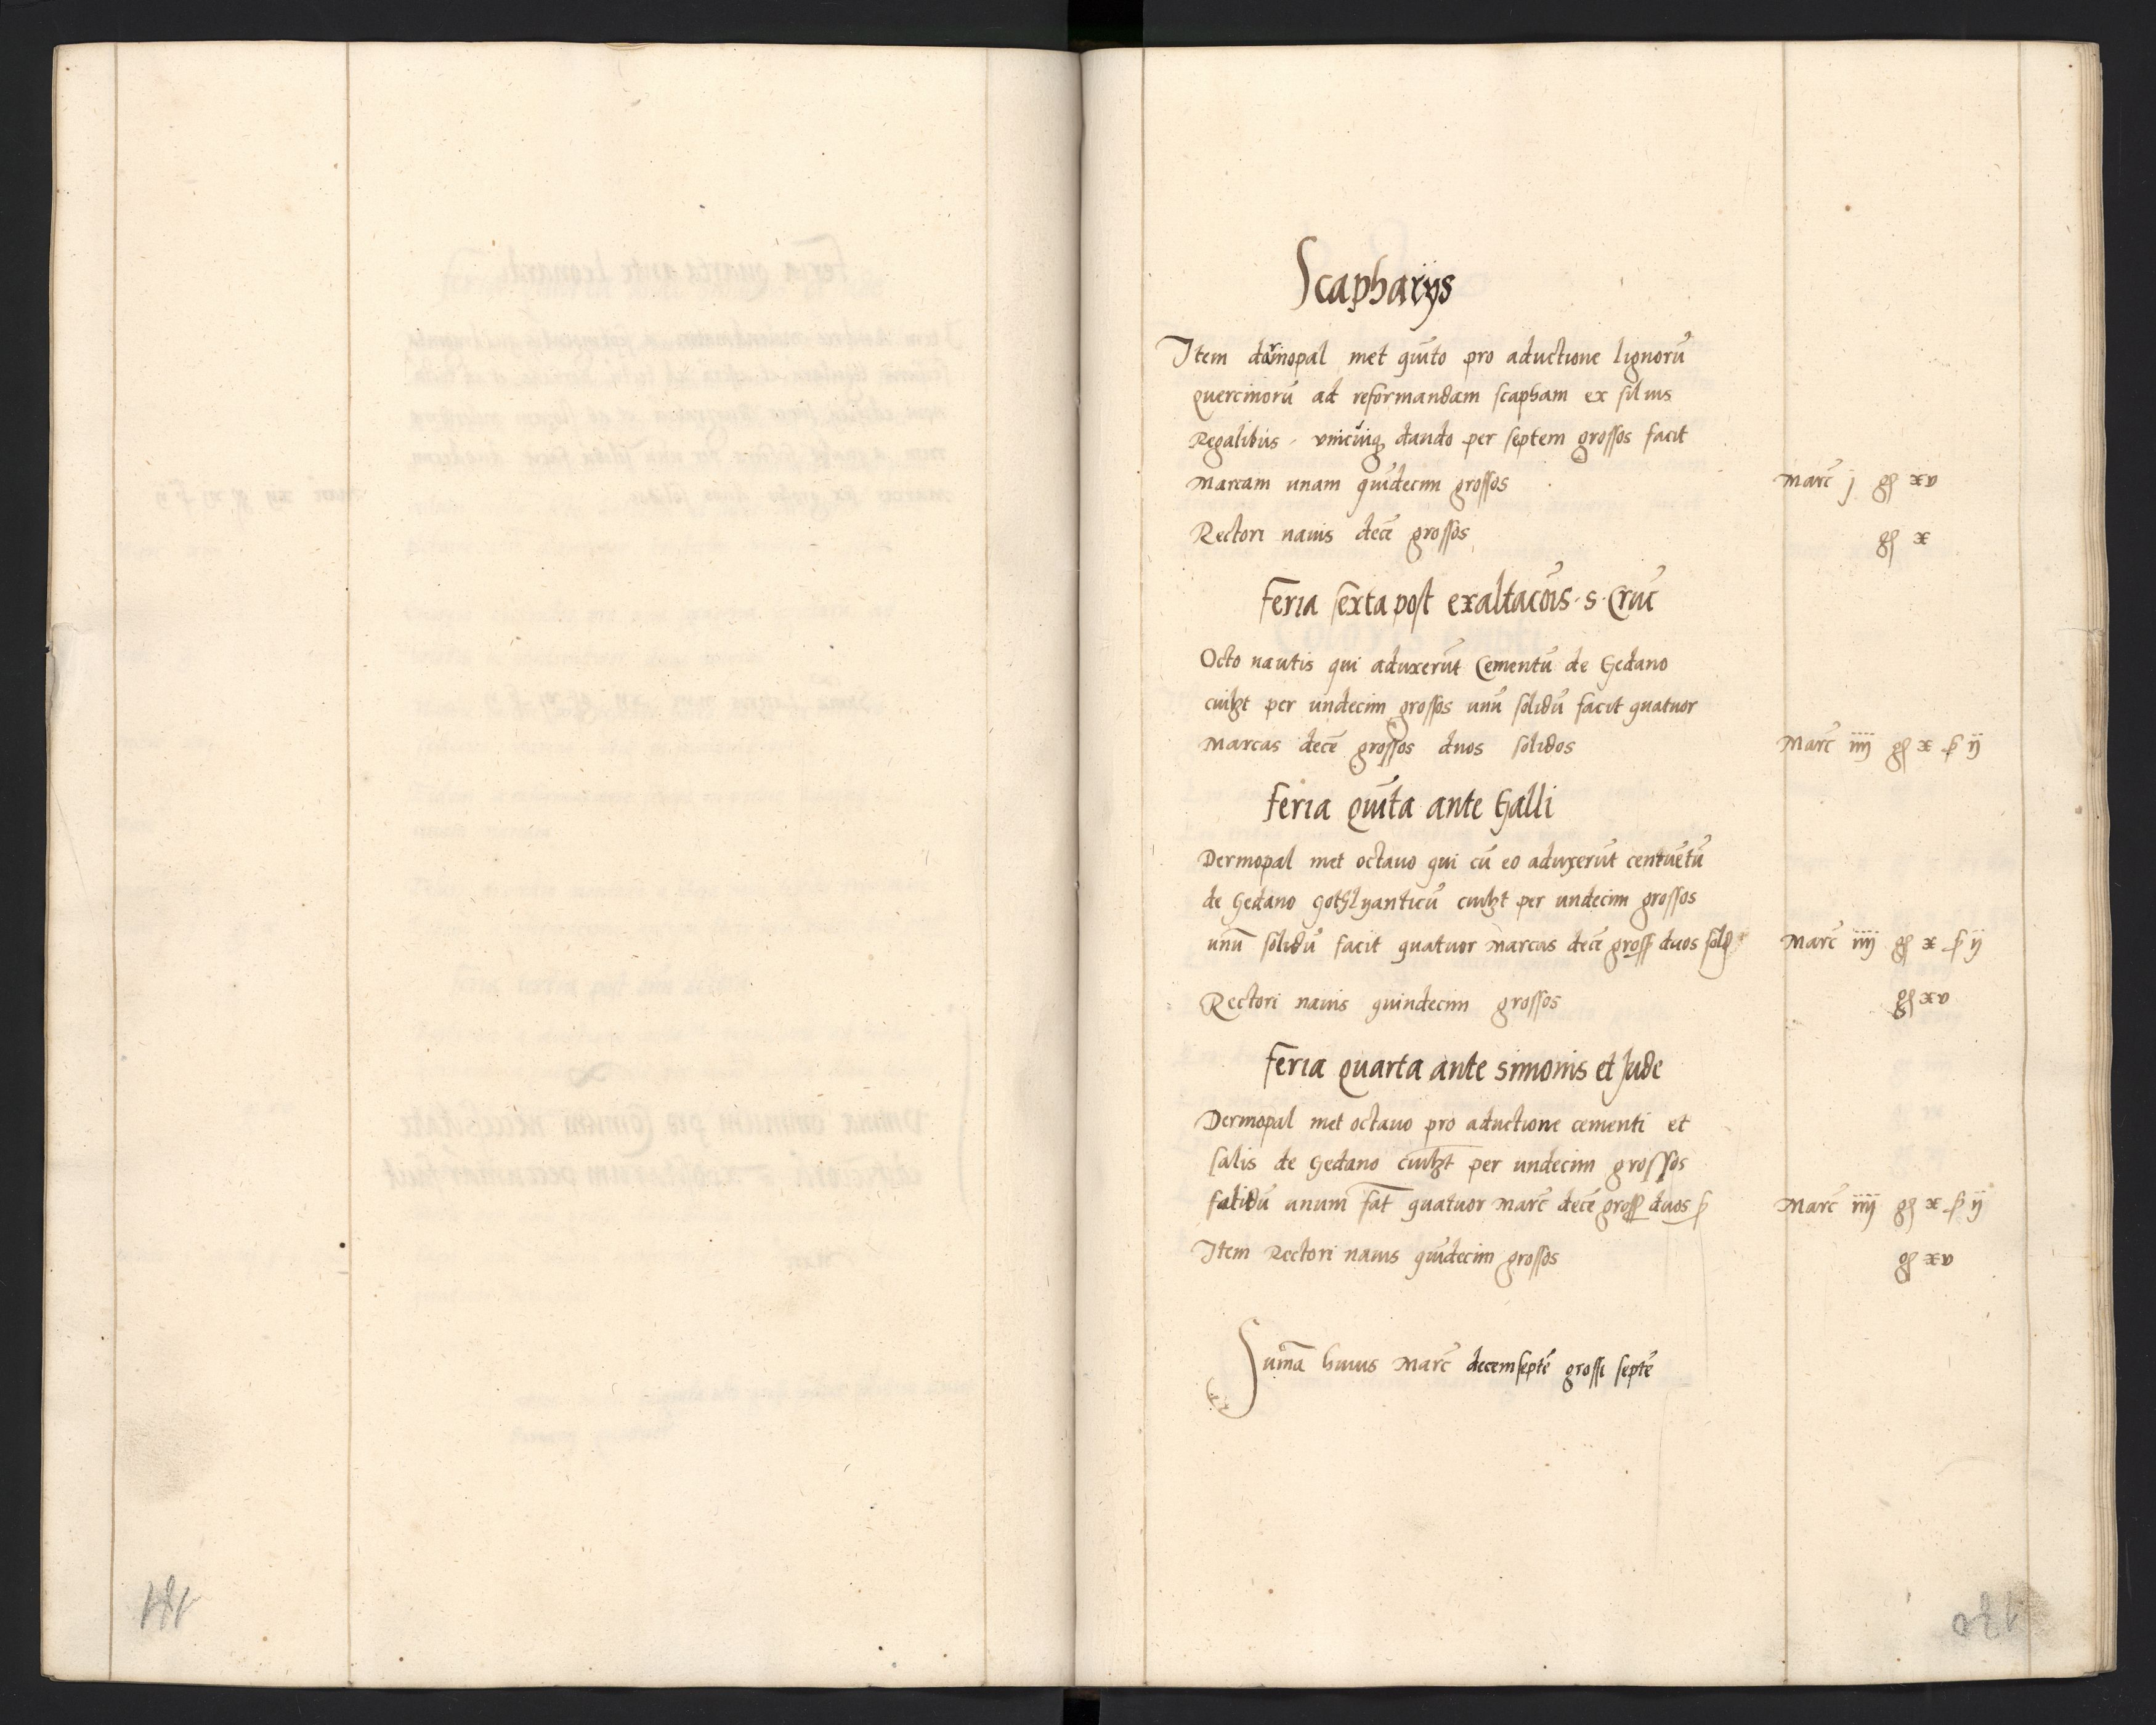 Scapharijs
Item darmopal met qui̅to pro aductione lignoru̅
quercinoru̅ ad reformandam scapham ex siluis
Regalibus, unicuiqȝ dando per septem grossos facit
marcam unam quindecim grossos
Marc̅ j gꝭ xv
Rectori nauis dece̅ grossos
gꝭ x
feria sexta post exaltaco̅is · s · Cruc̅
Octo nautis qui aduxeru̅t Cementu̅ de Gedano
cuilꝫt per undecim grossos unu̅ solidu̅ facit quatuor
marcas dece̅ grossos duos solidos
Marc̅ iiij gꝭ x ꝭ ij
feria qui̅ta ante Galli
Dermopal met octauo qui cu̅ eo aduxeru̅t
de Gedano cuilꝫt per undecim grossos
unu̅ solidu̅ facit quatuor marcas dece̅ gross duos sold
Marc̅ iiij gꝭ x ꝭ ij
Rectori nauis quindecim grossos
gꝭ xv
feria quarta ante simonis et Jude
Dermopal met octauo pro aductione cementi et
salis de Gedano cuilꝫt per undecim grossos
solidu̅ unum fa̅t quatuor marc̅ dece̅ gross duos ꝭ
Marc̅ iiij gꝭ x ꝭ ij
Item Rectori nauis qui̅decim grossos
gꝭ xv
Sum̅a huius Marc̅ decemsepte̅ grossi septe̅